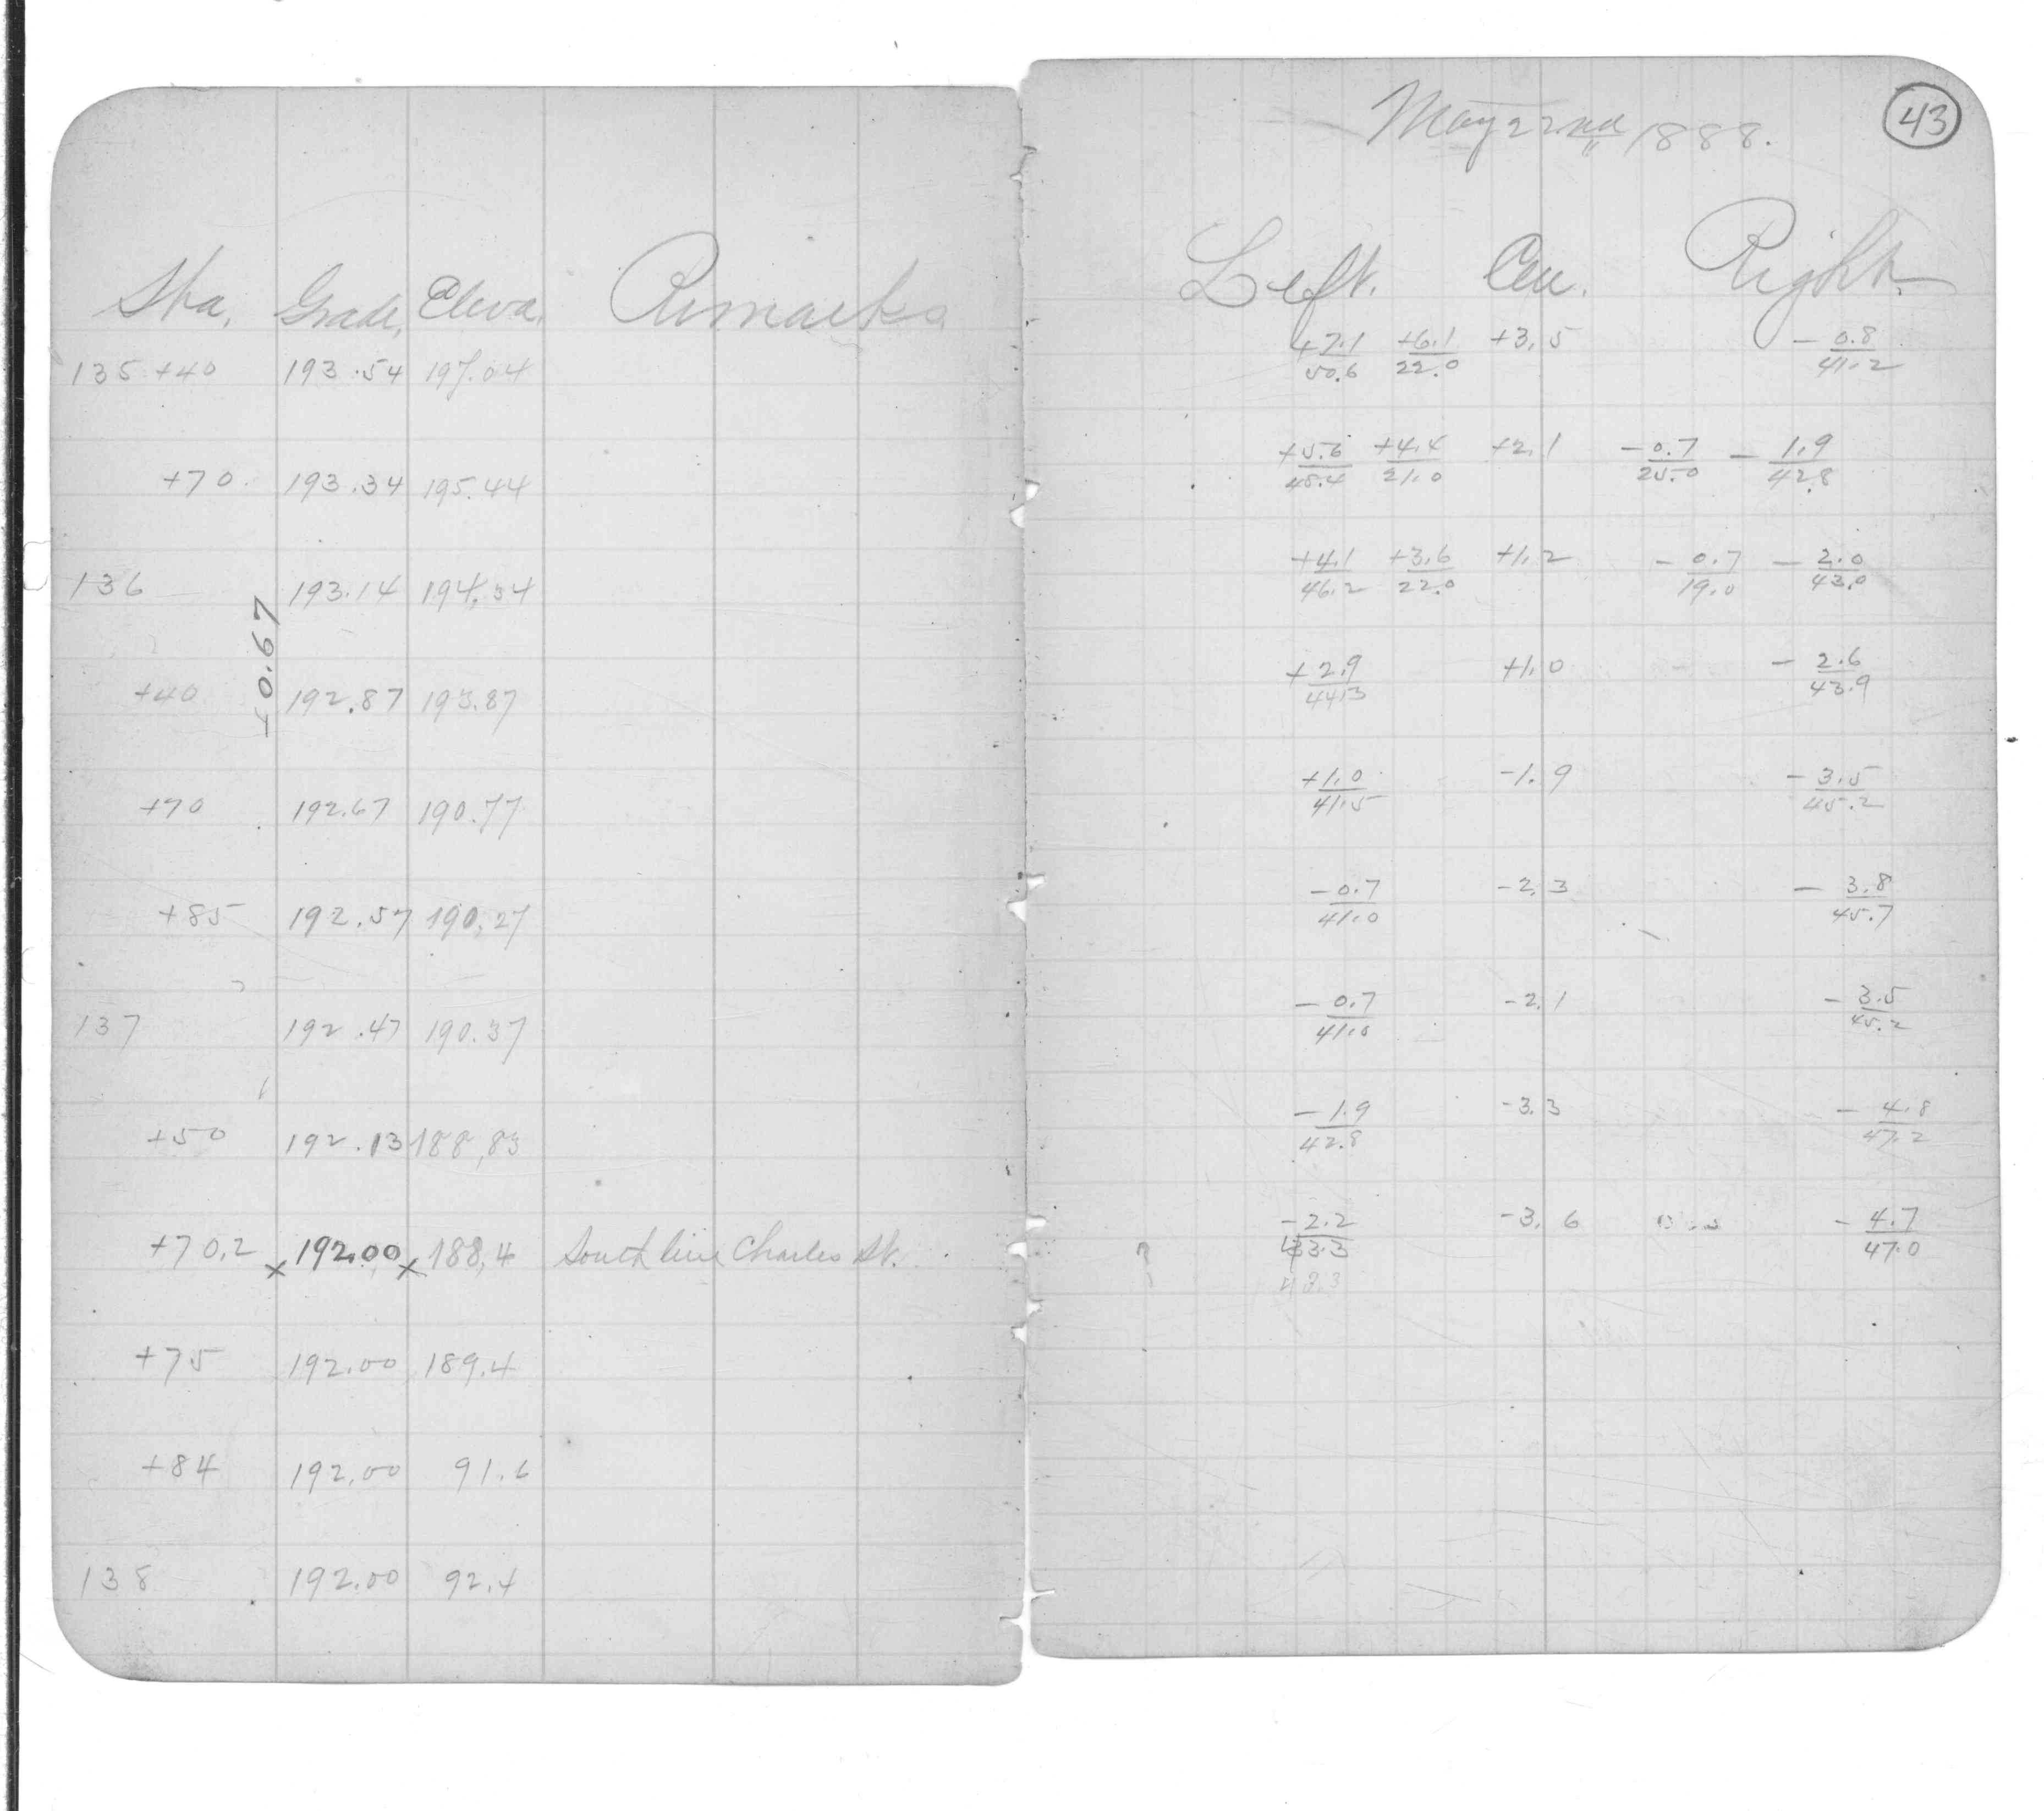 Sta. Grade, Eleva. Remarks
135 +40 193.54 197.04
+70 193.34 195.44
136 193.14 194.34
+0.67
+40 192.87 193.87
+70 192.67 190.77
+85 192.57 190.27
137 192.47 190.37
+50 192.13 188.83
+70.2 x 192.00 x 188.4 South line Charles St.
+75 192.00 189.4
+84 192.00 91.6
138 192.00 92.4
43
May 22nd 1888.
Left. Cen. Right.
+7.1 +6.1 +3.5 - 0.8
50.6 22.0 41.2
+5.6 +4.4 +2.1 -0.7 - 1.9
48.4 21.0 25.0 42.8
+4.1 +3.6 +1.2 - 0.7 - 2.0
46.2 22.0 19.0 43.0
+2.9 +1.0 - 2.6
44.3 43.9
+1.0 -1.9 -3.5
41.5 45.2
-0.7 -2.3 - 3.8
41.0 45.7
- 0.7 -2.1 - 3.5
41.0 45.2
- 1.9 -3.3 - 4.8
42.8 47.2
-2.2 -3.6 - 4.7
47.0
43.3